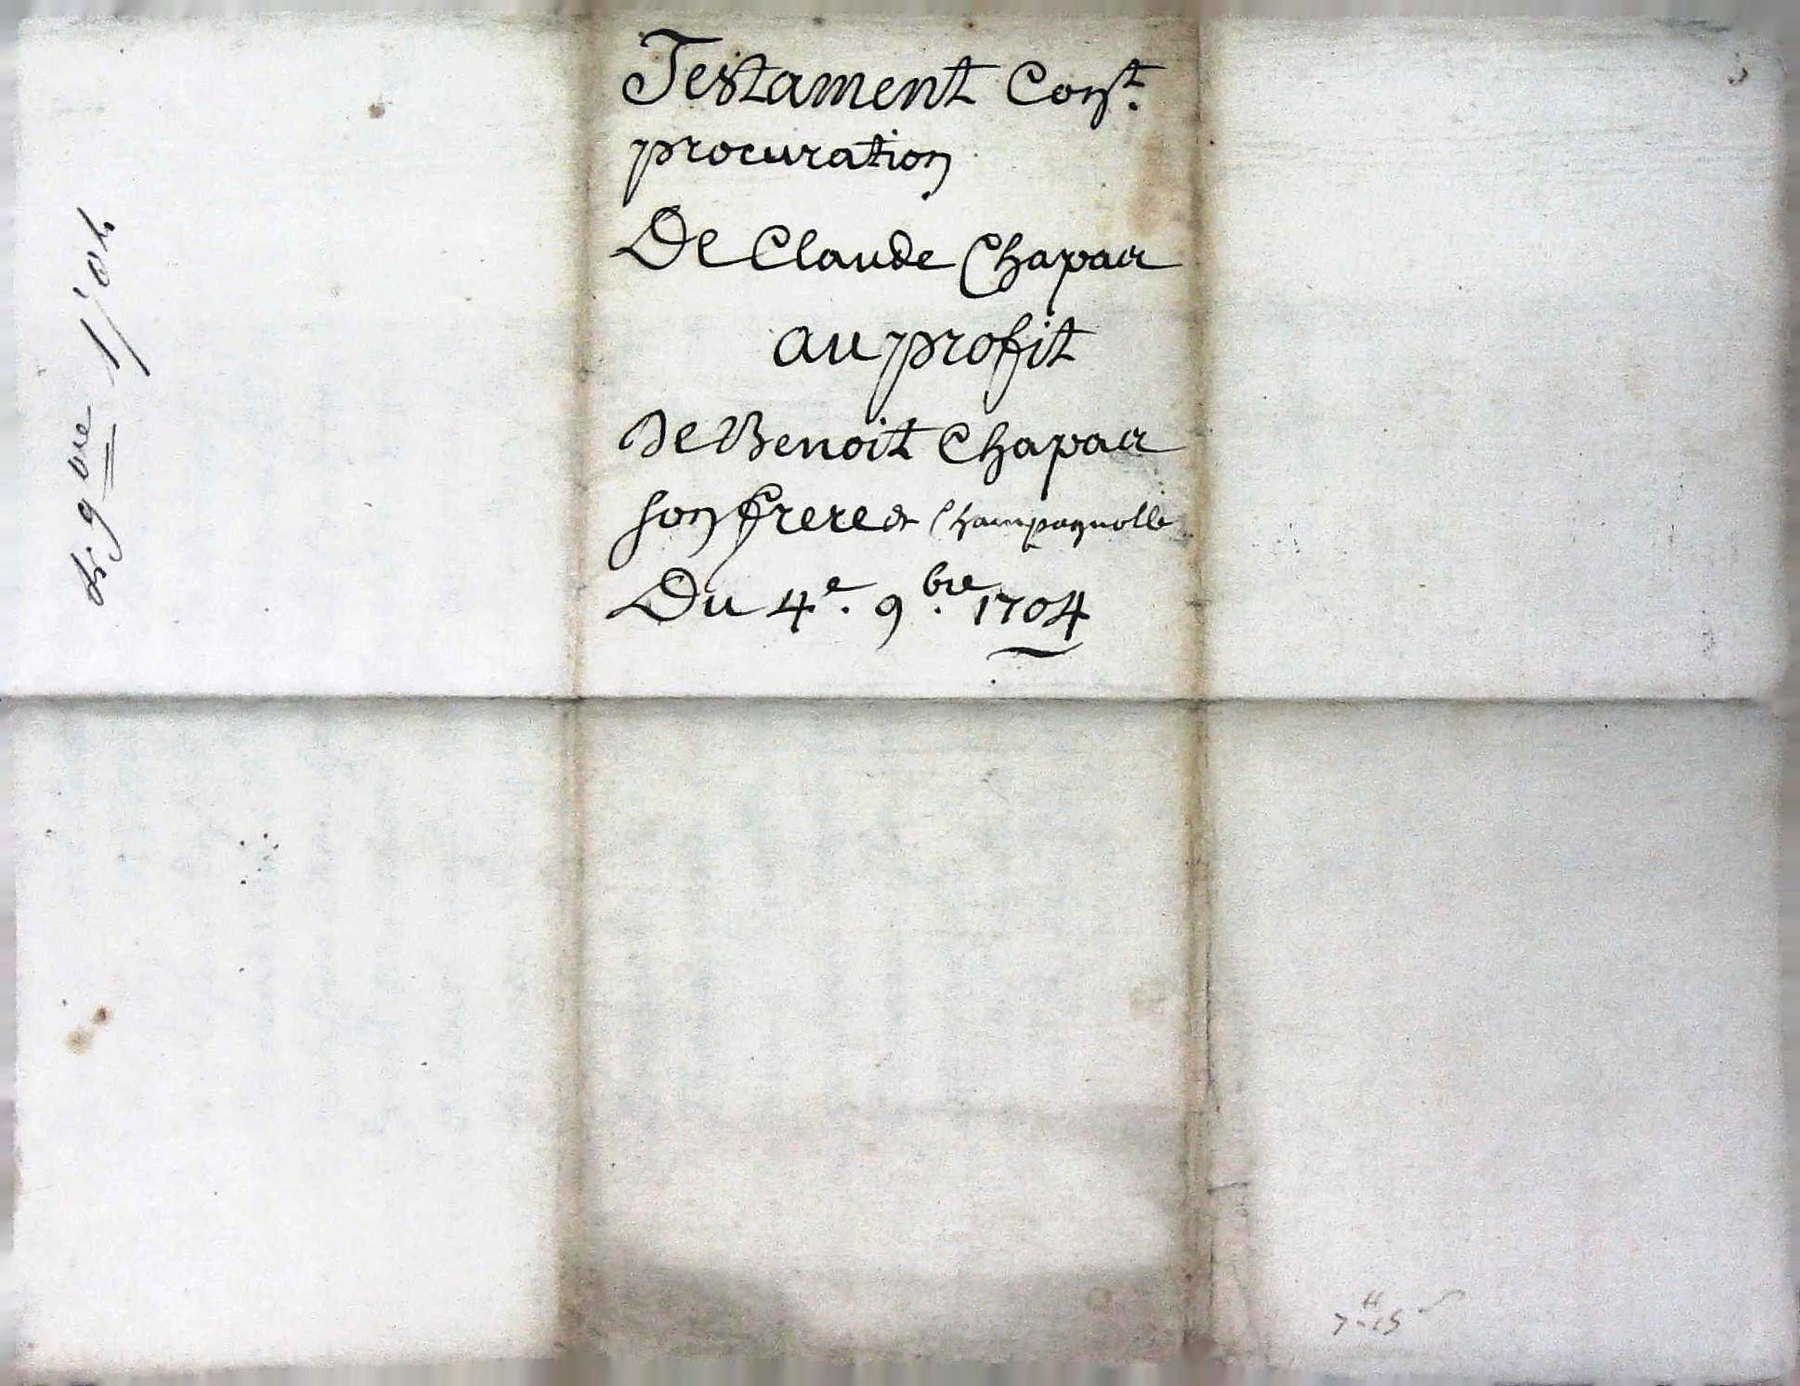 Testament Const.
procuration
De Claude Chapau
au profit
de Benoit Chapau
son frere & Champagnolle
Du 4e. 9bre. 1704
9bre 1704